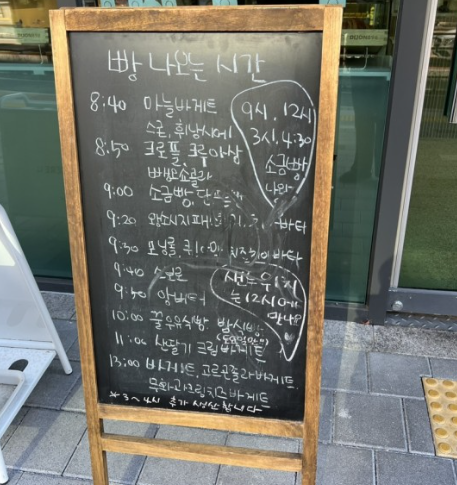 빵 나오는 시간
8:40 마늘바게트
스콘, 휘낭시에
8:50 크로플, 크루아상
뺑오쇼콜라
9:00 소금빵, 단팥빵
9:20
9:30 모닝롤,
9:40
9:50 앙버터
10:00 꿀우유식빵, 밤식빵
11:00 산딸기 크림바게트
13:00 바게트, 고르곤졸라바게트,
무화과크림치즈바게트
* 3~4시 추가 생산합니다
9시, 12시
3시, 4:30
소금빵
나와
샌드위치
는 12시에
만나요